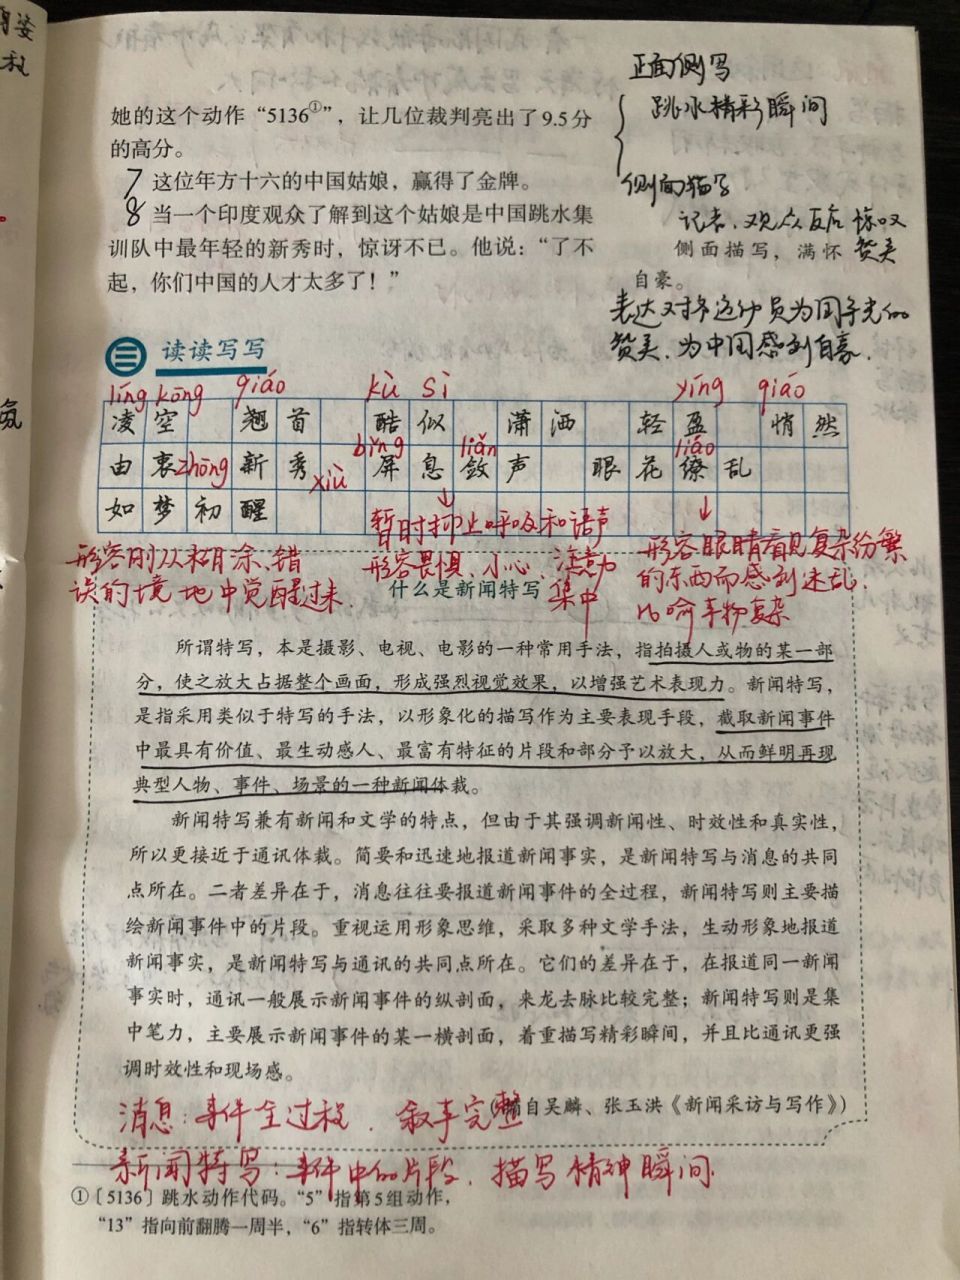 她的这个动作“5136①”，让几位裁判亮出了9.5分
的高分。
7 这位年方十六的中国姑娘，赢得了金牌。
8 当一个印度观众了解到这个姑娘是中国跳水集
训队中最年轻的新秀时，惊讶不已。他说：“了不
起，你们中国的人才太多了！”
正面侧写
跳水精彩瞬间
侧面描写
记者、观众反应 惊叹
赞美
侧面描写，满怀
自豪。
表达对
为国争光的
赞美，为中国感到自豪.
三 读读写写
líng kōng qiáo kù sì yíng qiǎo
凌空 翘首 酷似 潇洒 轻盈 悄然
zhōng xiù bǐng liǎn liáo
由衷 新秀 屏息 敛声 眼花缭乱
如梦初醒
暂时抑止呼吸和语声
形容畏惧、小心、注意力
集中
形容刚从糊涂、错
误的境地中觉醒过来.
形容眼睛看见复杂纷繁
的东西而感到迷乱.
比喻事物复杂
什么是新闻特写
所谓特写，本是摄影、电视、电影的一种常用手法，指拍摄人或物的某一部
分，使之放大占据整个画面，形成强烈视觉效果，以增强艺术表现力。新闻特写，
是指采用类似于特写的手法，以形象化的描写作为主要表现手段，截取新闻事件
中最具有价值、最生动感人、最富有特征的片段和部分予以放大，从而鲜明再现
典型人物、事件、场景的一种新闻体裁。
新闻特写兼有新闻和文学的特点，但由于其强调新闻性、时效性和真实性，
所以更接近于通讯体裁。简要和迅速地报道新闻事实，是新闻特写与消息的共同
点所在。二者差异在于，消息往往要报道新闻事件的全过程，新闻特写则主要描
绘新闻事件中的片段。重视运用形象思维，采取多种文学手法，生动形象地报道
新闻事实，是新闻特写与通讯的共同点所在。它们的差异在于，在报道同一新闻
事实时，通讯一般展示新闻事件的纵剖面，来龙去脉比较完整；新闻特写则是集
中笔力，主要展示新闻事件的某一横剖面，着重描写精彩瞬间，并且比通讯更强
调时效性和现场感。
自吴麟、张玉洪《新闻采访与写作》）
消息：事件全过程，叙事完整
新闻特写：事件中的片段，描写精神瞬间.
①〔5136〕跳水动作代码。“5”指第5组动作，
“13”指向前翻腾一周半，“6”指转体三周。